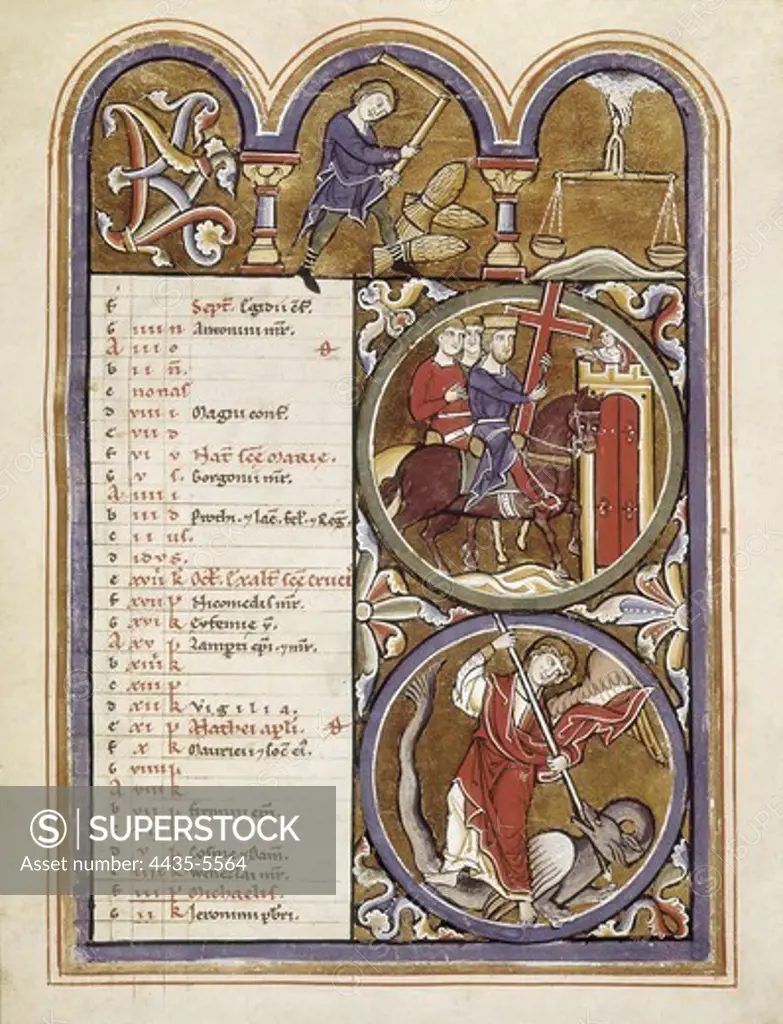 KL
f Sept. Egidii cf.
G iiii n Antonini mr.
A iii o
b ii n.
c nonas
d viii i Magni conf.
e vii d
f vi v Nat scē marie.
G v s. Gorgonii mr.
A iiii i
b iii d Prothi. ⁊ Iac.
c ii us.
d idvs.
e xviii k Oct. Exalt scē cruci
f xvii p Nicomedis mr.
G xvi k Eufemie v.
A xv p Lampti epi. ⁊ mr.
b xiiii k
c xiii p
d xii k vigilia.
e xi p Mathei apli.
f x k Mauricii ⁊ soc ei.
G viiii p
A viii k
b vii p
d v Cosme ⁊ Dam.
Wencezlai mr.
f iii p Michaelis.
G ii k Jeronimi pbri.
SUPERSTOCK
Asset number: 4435-5564